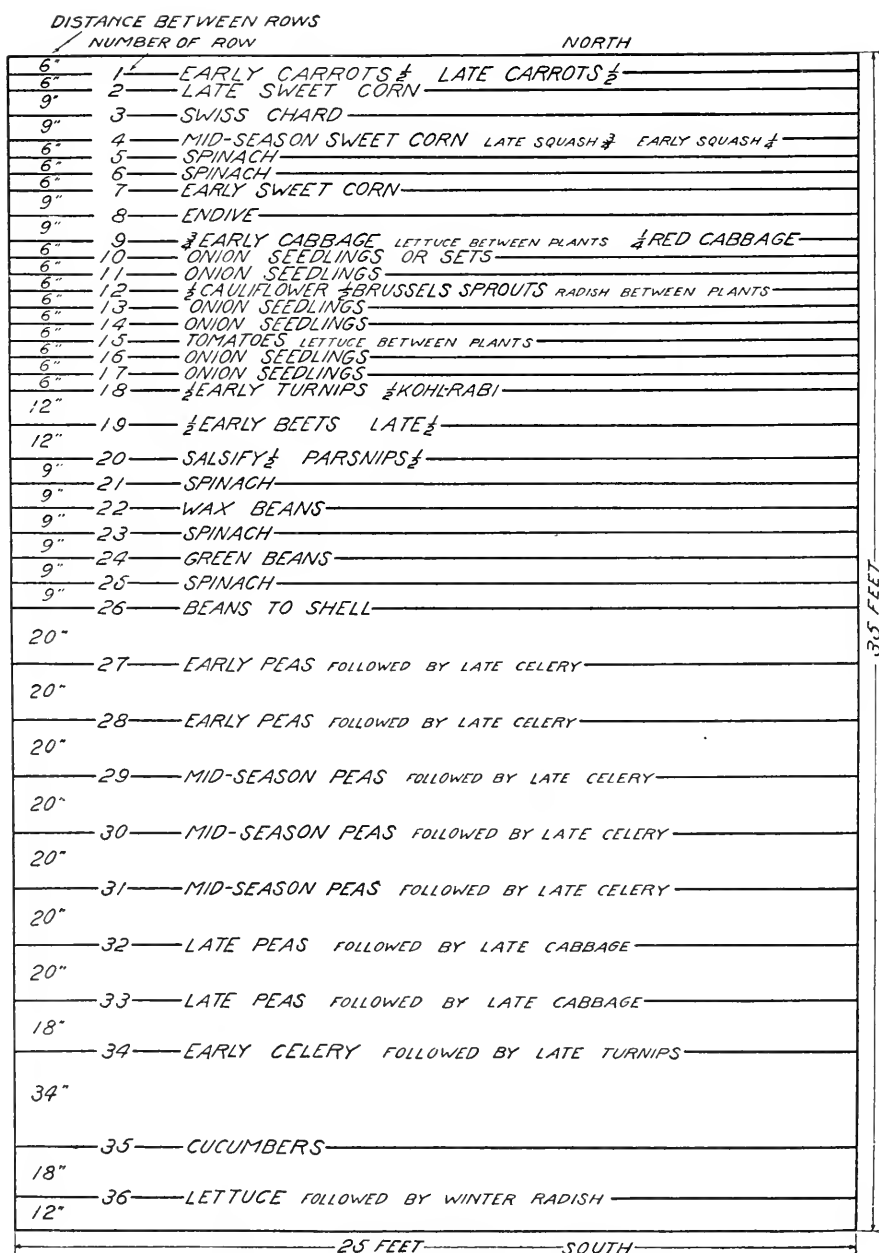 DISTANCE BETWEEN ROWS
NUMBER OF ROW
NORTH
6"
1 EARLY CARROTS ½ LATE CARROTS ½
6"
2 LATE SWEET CORN
9"
3 SWISS CHARD
9"
4 MID-SEASON SWEET CORN LATE SQUASH ¾ EARLY SQUASH ¼
6"
5 SPINACH
6"
6 SPINACH
6"
7 EARLY SWEET CORN
9"
8 ENDIVE
9"
9 ¾ EARLY CABBAGE LETTUCE BETWEEN PLANTS ¼ RED CABBAGE
6"
10 ONION SEEDLINGS OR SETS
6"
11 ONION SEEDLINGS
6"
12 ½ CAULIFLOWER ½ BRUSSELS SPROUTS RADISH BETWEEN PLANTS
6"
13 ONION SEEDLINGS
6"
14 ONION SEEDLINGS
6"
15 TOMATOES LETTUCE BETWEEN PLANTS
6"
16 ONION SEEDLINGS
6"
17 ONION SEEDLINGS
6"
18 ½ EARLY TURNIPS ½ KOHL-RABI
12"
19 ½ EARLY BEETS LATE ½
12"
20 SALSIFY ½ PARSNIPS ½
9"
21 SPINACH
9"
22 WAX BEANS
9"
23 SPINACH
9"
24 GREEN BEANS
9"
25 SPINACH
9"
26 BEANS TO SHELL
20"
27 EARLY PEAS FOLLOWED BY LATE CELERY
20"
28 EARLY PEAS FOLLOWED BY LATE CELERY
20"
29 MID-SEASON PEAS FOLLOWED BY LATE CELERY
20"
30 MID-SEASON PEAS FOLLOWED BY LATE CELERY
20"
31 MID-SEASON PEAS FOLLOWED BY LATE CELERY
20"
32 LATE PEAS FOLLOWED BY LATE CABBAGE
20"
33 LATE PEAS FOLLOWED BY LATE CABBAGE
18"
34 EARLY CELERY FOLLOWED BY LATE TURNIPS
34"
35 CUCUMBERS
18"
36 LETTUCE FOLLOWED BY WINTER RADISH
12"
35 FEET
25 FEET
SOUTH